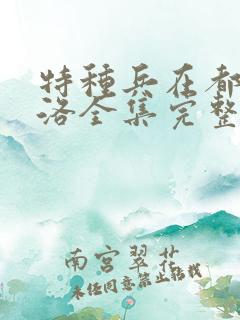 特种兵在都
洛全集完整
南宫翠花
未经同意禁止转载